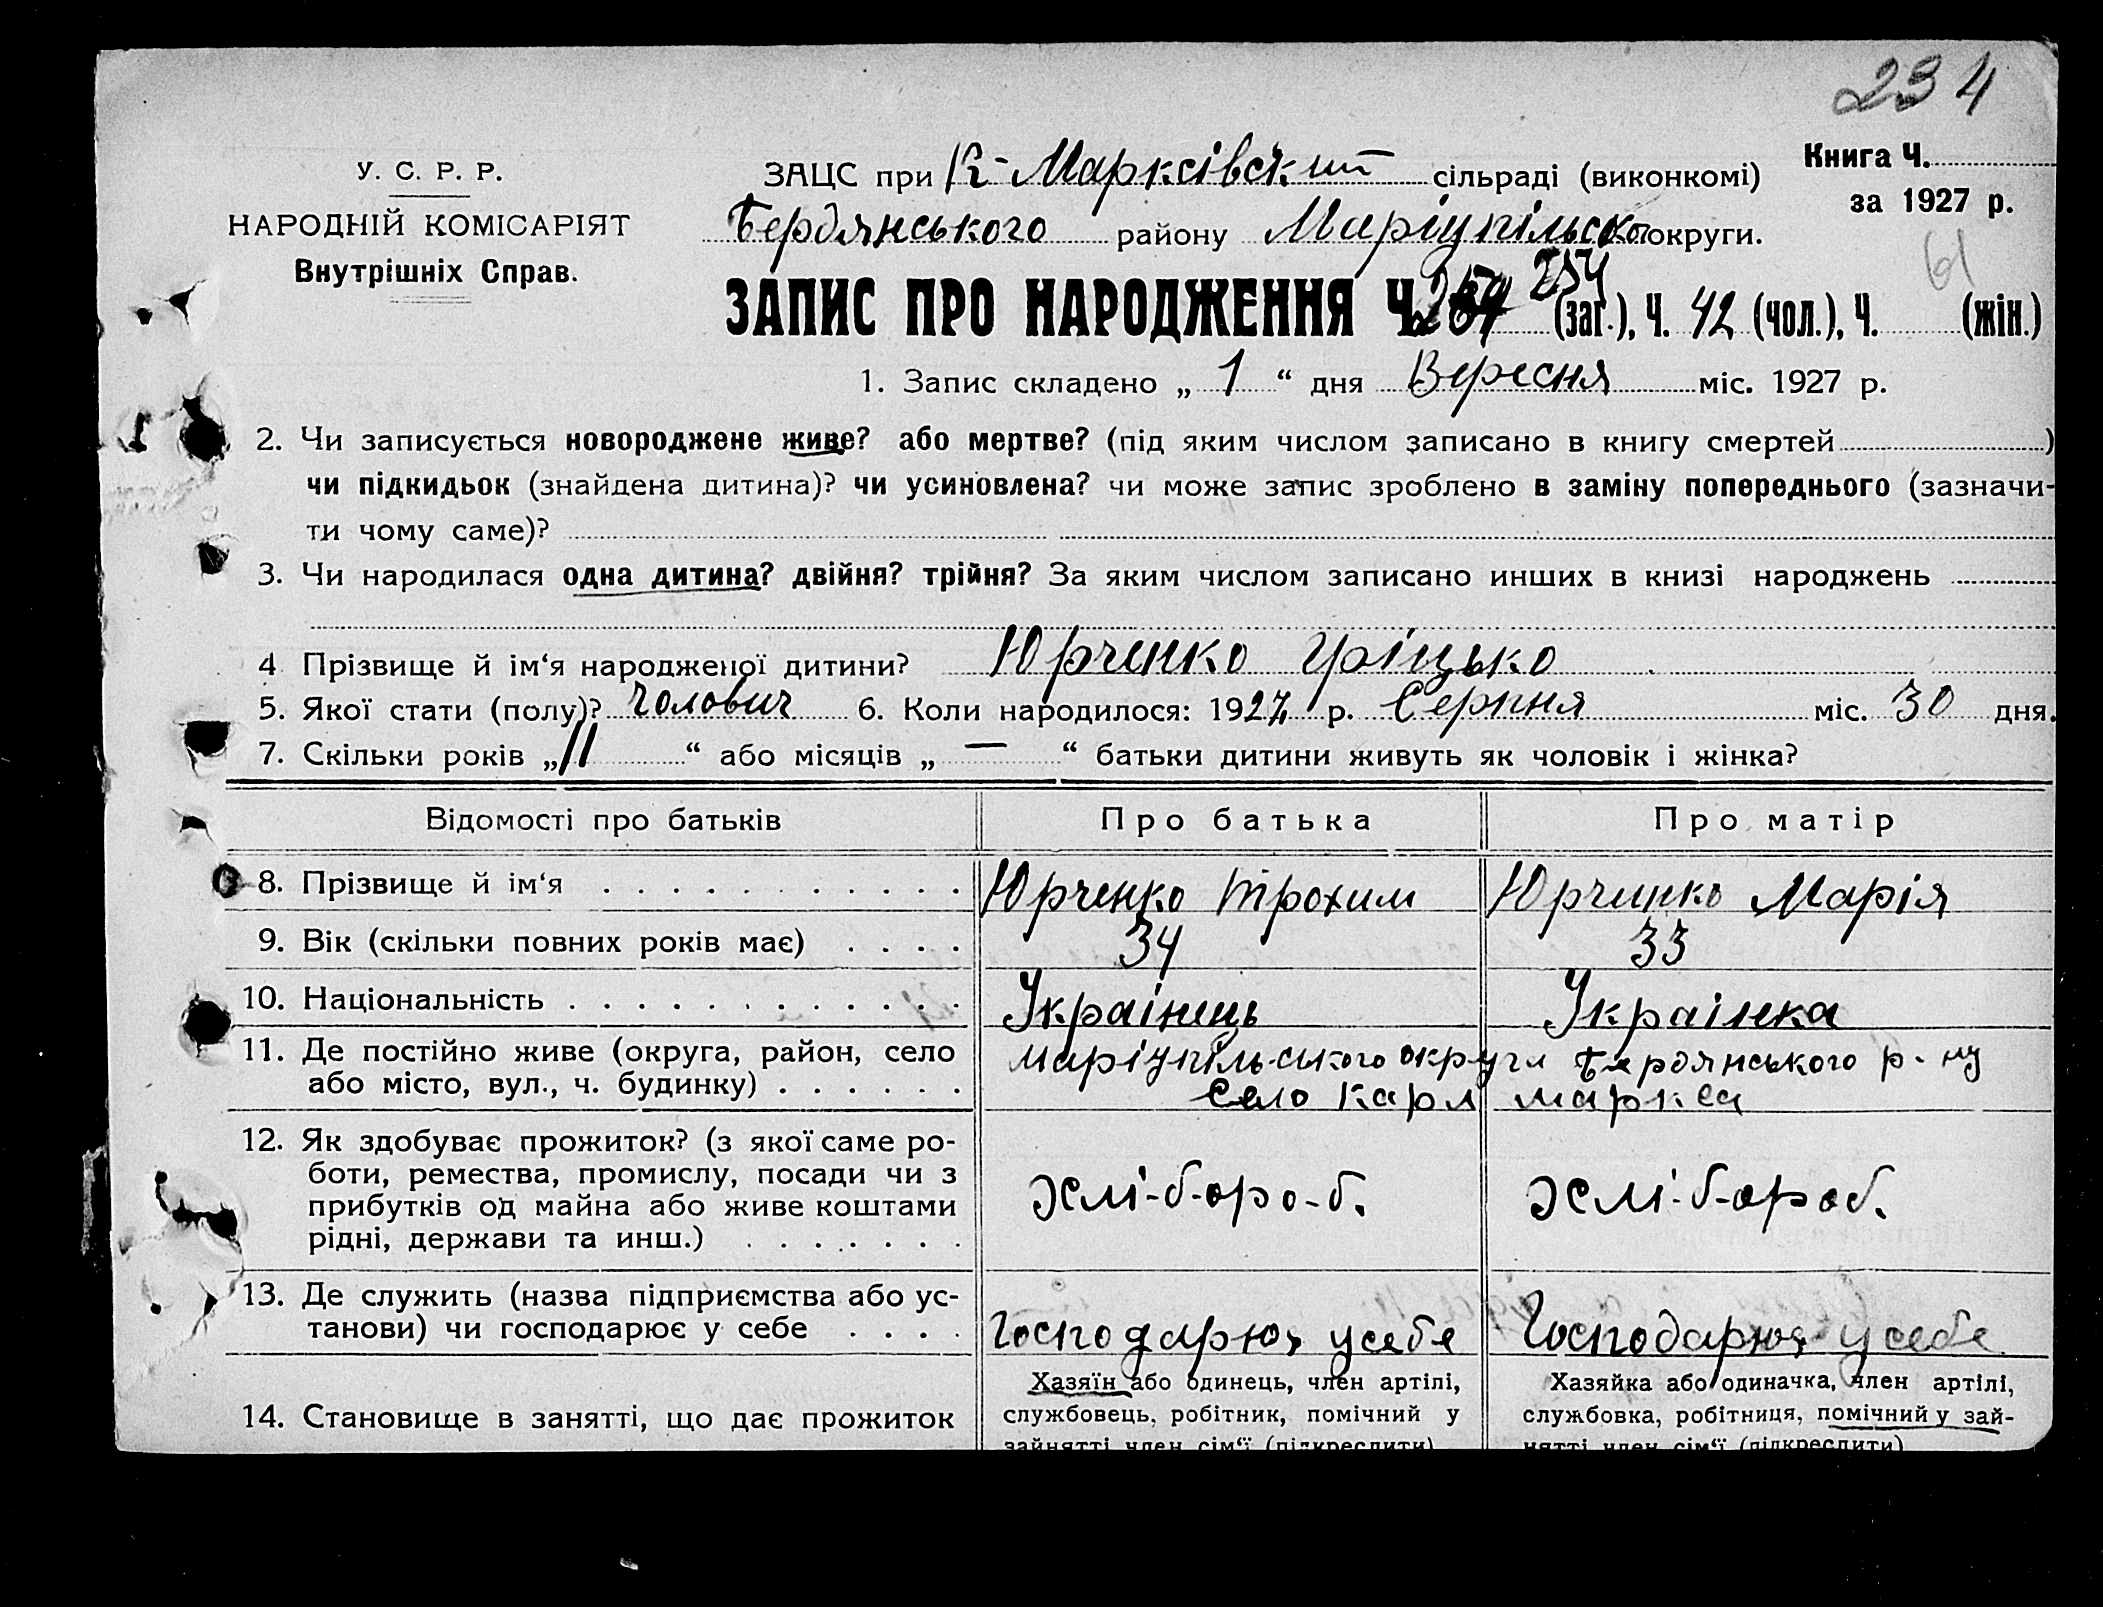 234
У. С. Р. Р.
НАРОДНІЙ КОМІСАРІЯТ
Внутрішніх Справ.
ЗАЦС при К-Марксівський сільраді (виконкомі)
Бердянського району Маріупільсько округи.
Книга Ч.
за 1927 р.
ЗАПИС ПРО НАРОДЖЕННЯ Ч. 254 (заг.), Ч. 42 (чол.), Ч. (жін.)
1. Запис складено „ 1 “ дня Вересня міс. 1927 р.
2. Чи записується новороджене живе? або мертве? (під яким числом записано в книгу смертей )
чи підкидьок (знайдена дитина)? чи усиновлена? чи може запис зроблено в заміну попереднього (зазначи-
ти чому саме)?
3. Чи народилася одна дитина? двійня? трійня? За яким числом записано инших в книзі народжень
4 Прізвище й ім‘я народженої дитини? Юрченко Гріцько
5. Якої стати (полу)? Чолович 6. Коли народилося: 1927 р. Серпня міс. 30 дня.
7. Скільки років „ 11 “ або місяців „ — “ батьки дитини живуть як чоловік і жінка?
Відомості про батьків Про батька Про матір
8. Прізвище й ім‘я . . . . . . . . . . . Юрченко Трохим Юрченко Марія
9. Вік (скільки повних років має) . . . . 34 33
10. Національність . . . . . . . . . . . . Українець Українка
11. Де постійно живе (округа, район, село
або місто, вул., ч. будинку) . . . . . .
Маріупільського округи Бердянського р-ну
Село Карл Маркса
12. Як здобуває прожиток? (з якої саме ро-
боти, ремества, промислу, посади чи з
прибутків од майна або живе коштами
рідні, держави та инш.) . . . . . . .
Хлі-б-оро-б. Хлі-б-ороб.
13. Де служить (назва підприємства або ус-
танови) чи господарює у себе . . . .
Господарює у себе Господарює у себе
14. Становище в занятті, що дає прожиток
Хазяїн або одинець, член артілі,
службовець, робітник, помічний у
зайнятті член сім‘ї (підкреслити)
Хазяйка або одиначка, член артілі,
службовка, робітниця, помічний у зай-
нятті член сім‘ї (підкреслити)